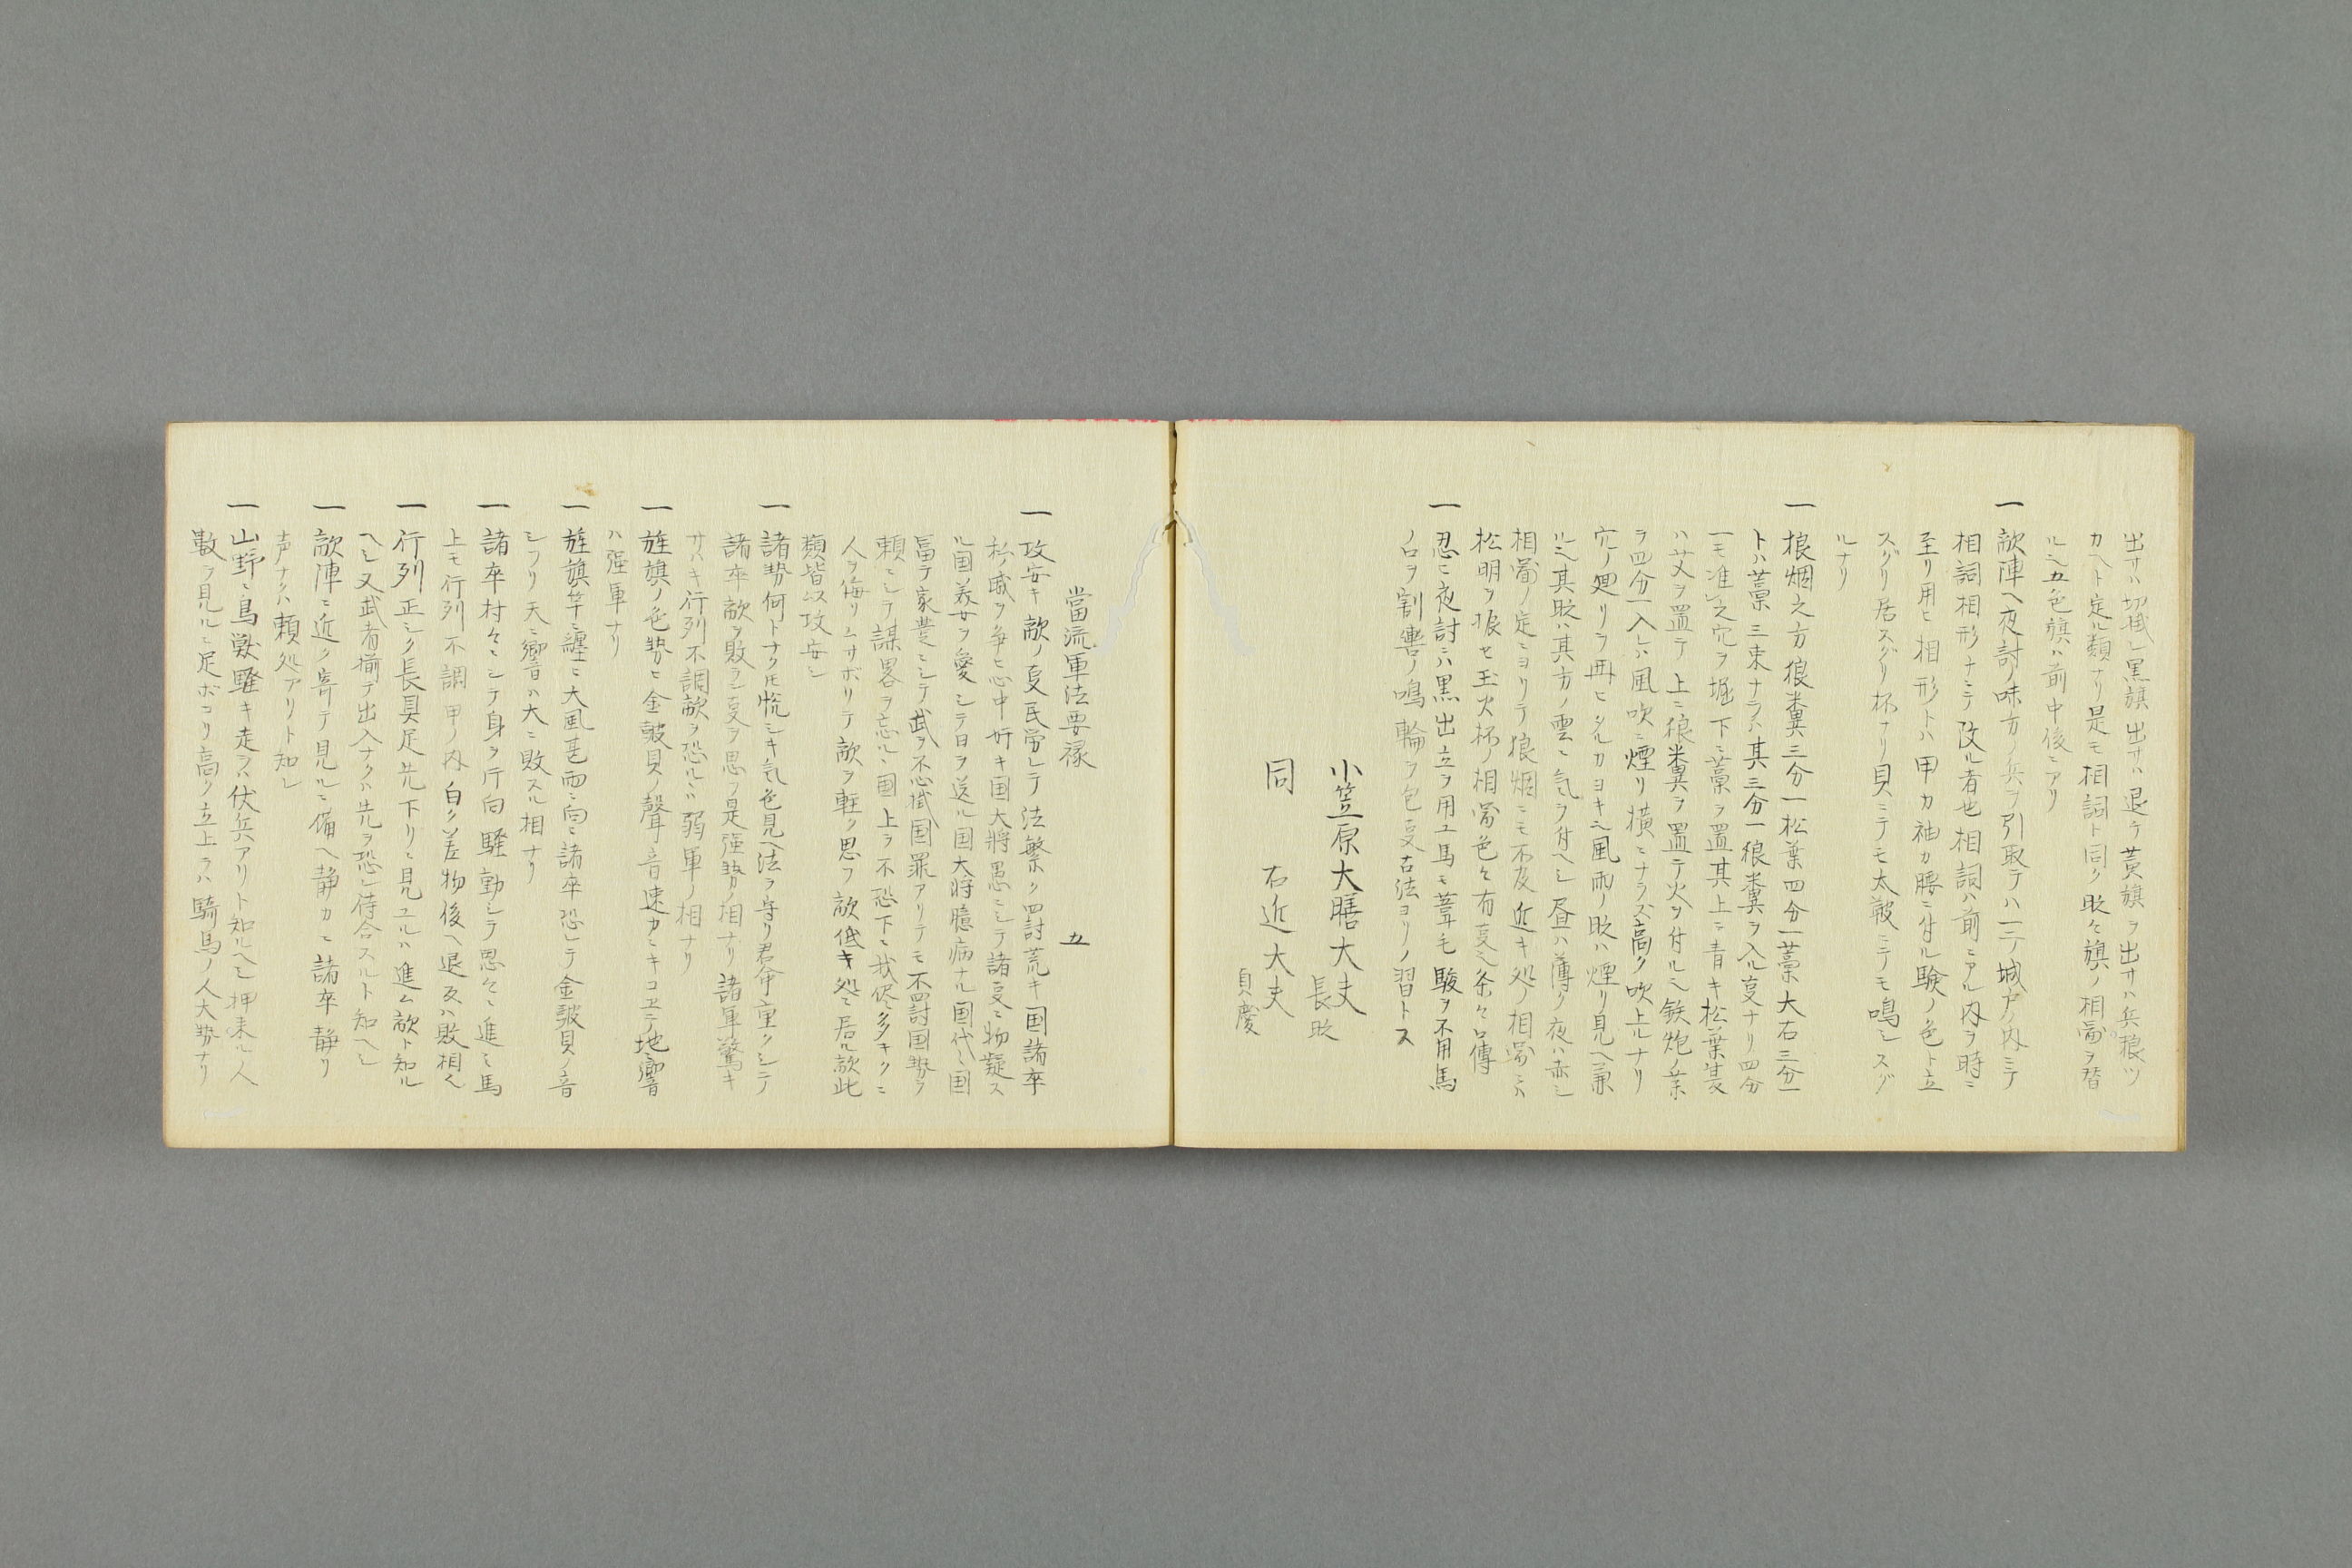 出サハ切掛レ黒旗出サハ退テ黄旗ヲ出サハ兵粮ツ
カヘト定ル類ナリ是モ相詞ト同ク時々旗ノ相圖ヲ替
ルヘシ五色旗ハ前中後ニアリ
一 敵陣ヘ夜討ノ味方ノ兵ヲ引取テハ一二ノ城戸ノ内ニテ
相詞相形ナニテ改ル者也相詞ハ前ニアル内ヲ時ニ
至リ用ヒ相形トハ甲カ袖カ腰ニ付ル験ノ色ト立
スグリ居スグリ杯ナリ貝ニテモ太鞁ニテモ鳴シスグ
ルナリ
一 狼烟之方狼糞三分一松葉四分一藁大右三分一
トハ藁三束ナラハ其三分一狼糞ヲ入ル事ナリ四分
一モ准之穴ヲ掘下ニ藁ヲ置其上ニ青キ松葉其
ハ又ヲ置テ上ニ狼糞ヲ置テ火ヲ付ルヘシ鉄炮ノ薬
ヲ四分一入レハ風吹ニ煙リ横ニナラズ高ク吹上ルナリ
穴ノ廻リヲ再ヒタルカヨキヘシ風雨ノ時ハ煙リ見ヘ兼
ルヘシ其時ハ其方ノ雲ニ気ヲ付ヘシ昼ハ薄ク夜ハ赤シ
相圖ノ定ニヨリテ狼烟ニモ不及近キ処ノ相圖ニハ
松明ヲ振セ玉火杯ノ相圖色々有事ヘシ条々口傳
一 忍ヒ夜討ニハ黒出立ヲ用ユ馬モ葦毛駿ヲ不用馬
ノ口ヲ割轡ノ鳴輪ヲ包事古法ヨリノ習トス
小笠原大膳大夫
長時
同 右近大夫
貞慶
當流軍法要禄 五
一 攻安キ敵ノ事民労レテ法繁ク四討荒キ国諸卒
私ノ威ヲ争ヒ心中奸キ国大将愚ニシテ諸事ニ物疑ス
ル国美女ヲ愛シテ日ヲ送ル国大将臆病ナル国代々国
冨テ家豊ニシテ武ヲ不心掛国罪アリテモ不罰国勢ヲ
頼ニシテ謀畧ヲ忘ルヽ国上ヲ不恐下ニ我侭多キクニ
人ヲ侮リムサボリテ敵ヲ軽ク思フ敵低キ処ニ居ル敵此
類皆以攻安シ
一 諸勢何トナク氏慌シキ気色見ヘ法ヲ守リ君命重クシテ
諸卒敵ヲ敗ラン事ヲ思フ是強勢ノ相ナリ諸軍驚キ
サハキ行列不調敵ヲ恐ルヽハ弱軍ノ相ナリ
一 旌旗ノ色勢ヒ金皷貝ノ聲音速カニキコエテ地ニ響
ハ強軍ナリ
一 旌旗竿ニ纏ヒ大風甚雨ニ向ヒ諸卒恐レテ金皷貝ノ音
シフリ天ニ響ハ大ニ敗スル相ナリ
一 諸卒村々ニシテ身ヲ片向騒動シテ思々ニ進ミ馬
上モ行列不調甲ノ内白ク差物後ヘ退反ハ敗相ヘシ
一 行列正シク長具足先下リニ見ユルハ進ム敵ト知ル
ヘシ又武者揃テ出入ナクハ先ヲ恐レ待合スルト知ヘシ
一 敵陣ニ近ク寄テ見ルニ備ヘ静カニ諸卒静リ
声ナクハ頼処アリト知レ
一 山野ニ鳥獣騒キ走ラハ伏兵アリト知ルヘシ押来ル人
數ヲ見ルニ足ボコリ高ク立上ラハ騎馬ノ人大勢ナリ